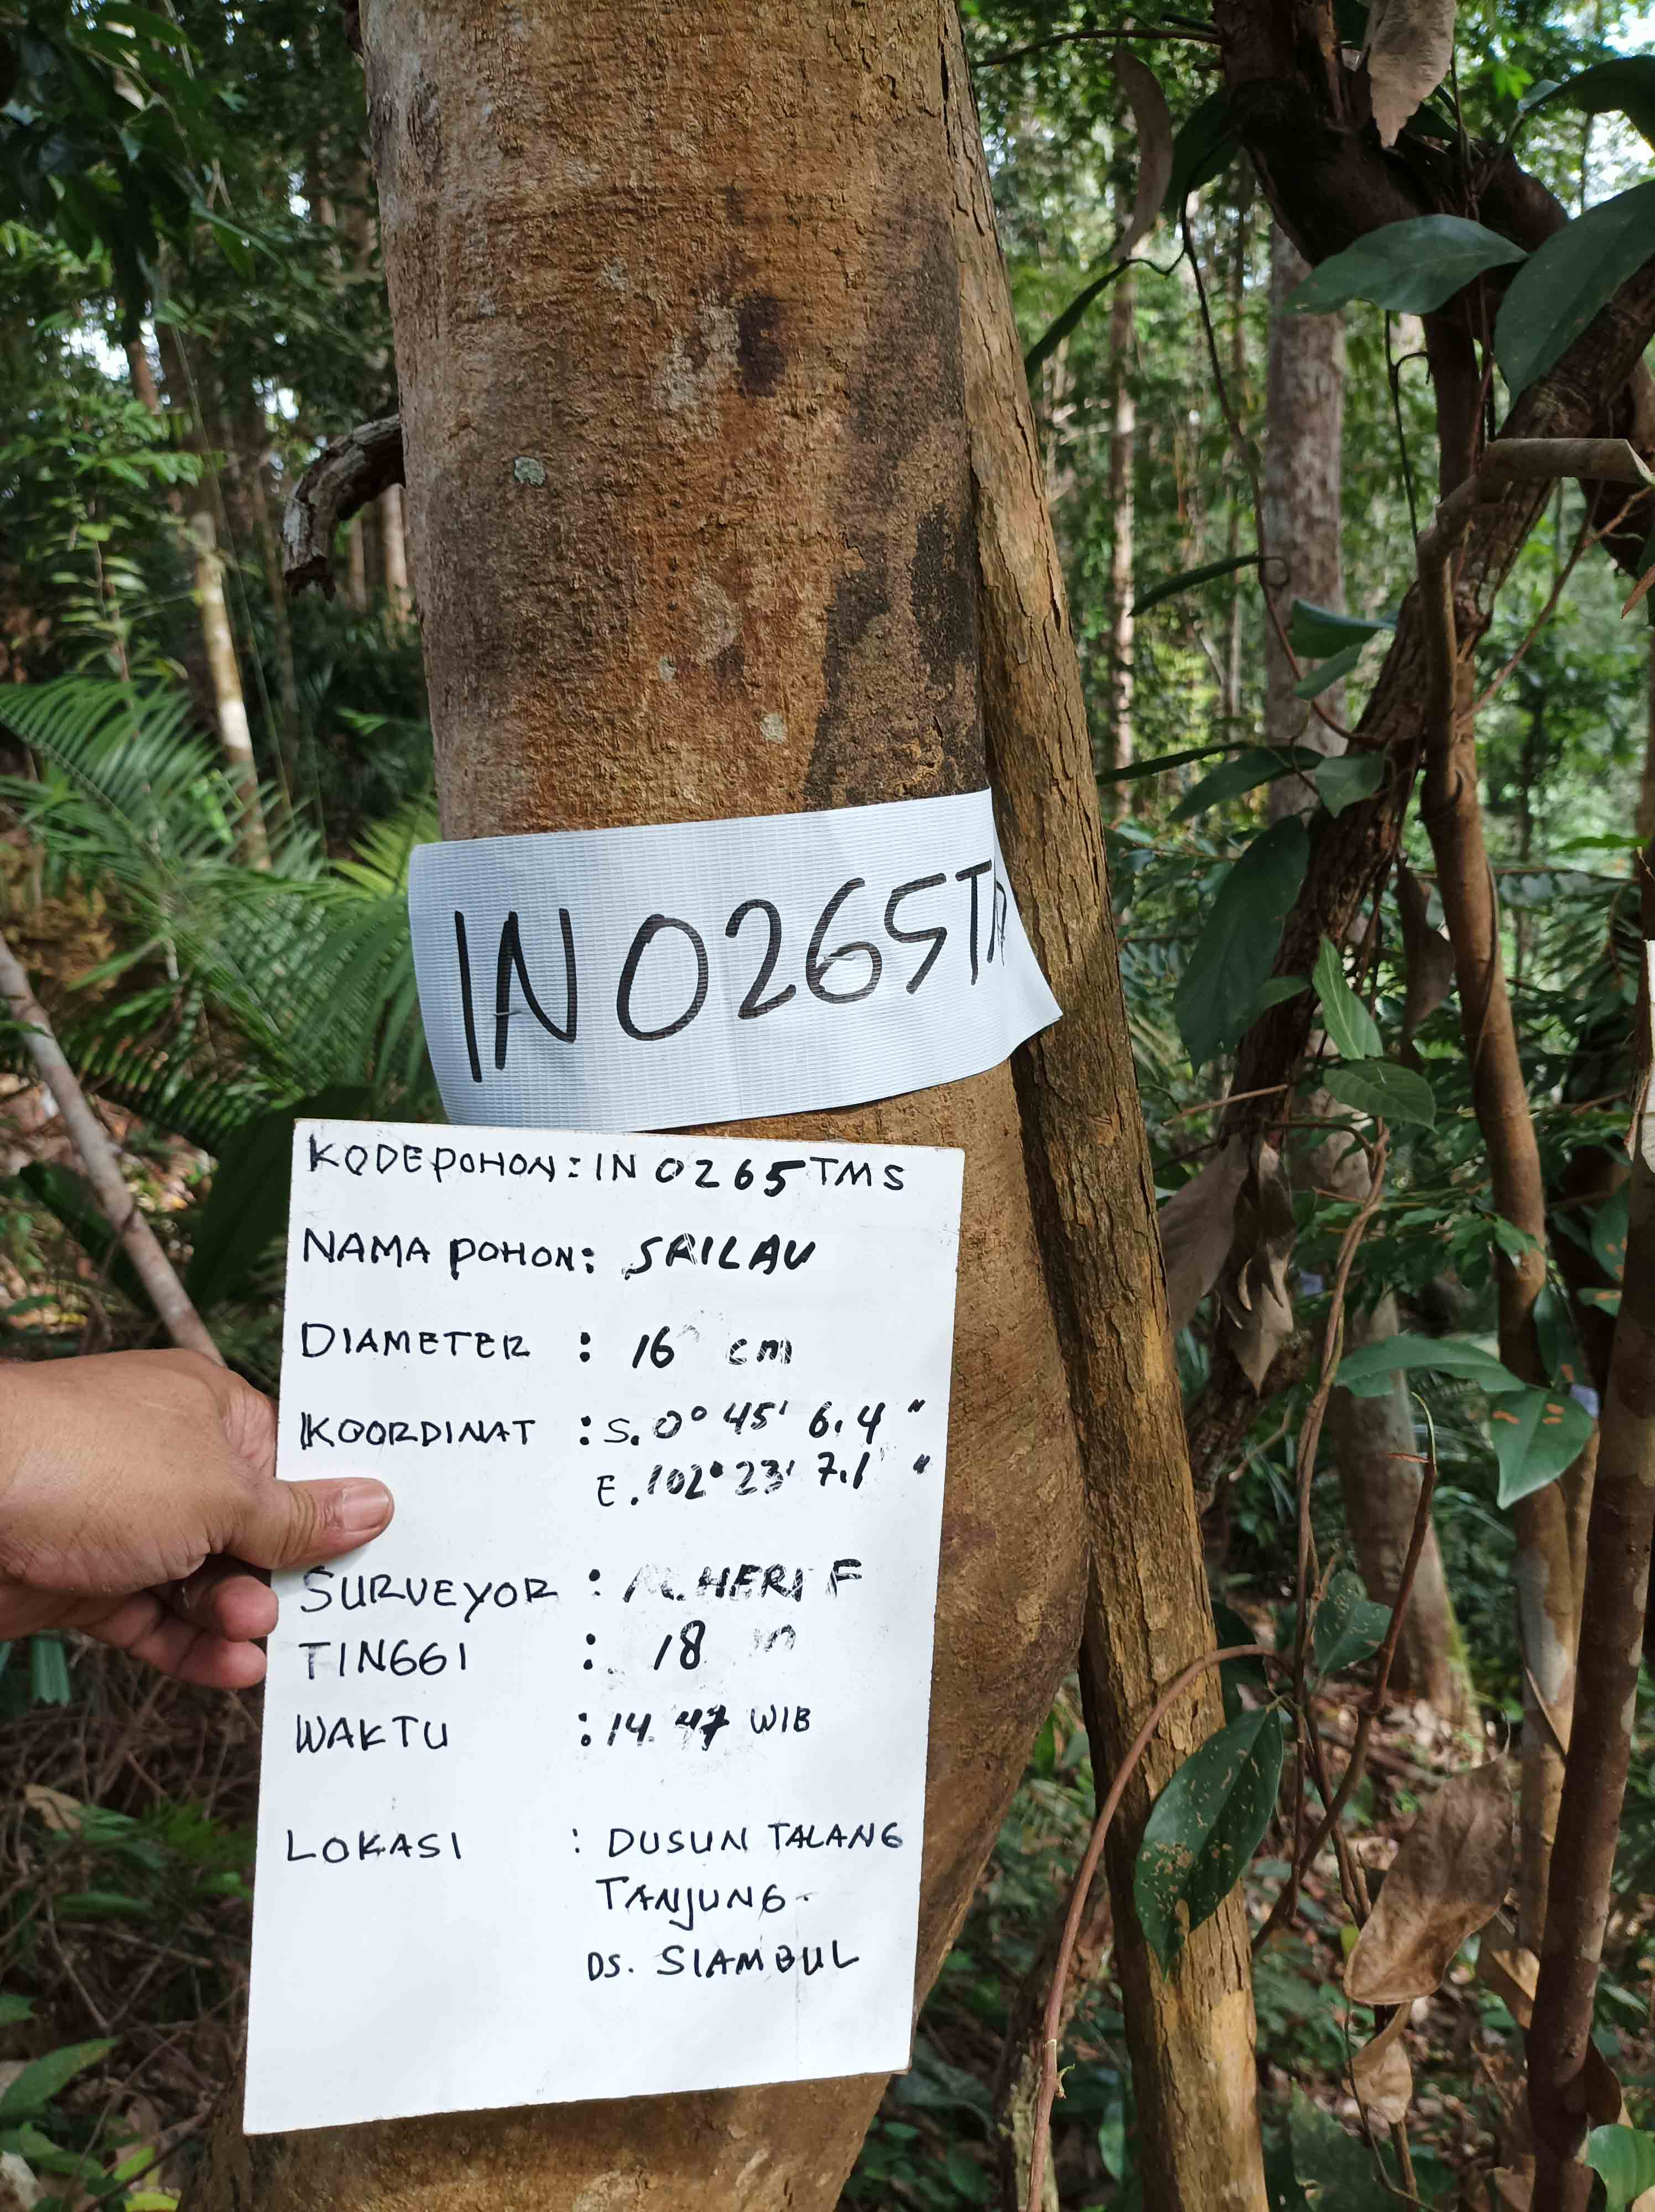 IN 0265TM
KODE POHON : IN 0265 TMS
NAMA POHON : SAILAU
DIAMETER : 16 cm
KOORDINAT : S. 0° 45' 6.4 "
E. 102° 23' 7.1 "
SURVEYOR : M. HERI F
TINGGI : 18 m
WAKTU : 14. 47 WIB
LOKASI : DUSUN TALANG
TANJUNG -
DS. SIAMBUL